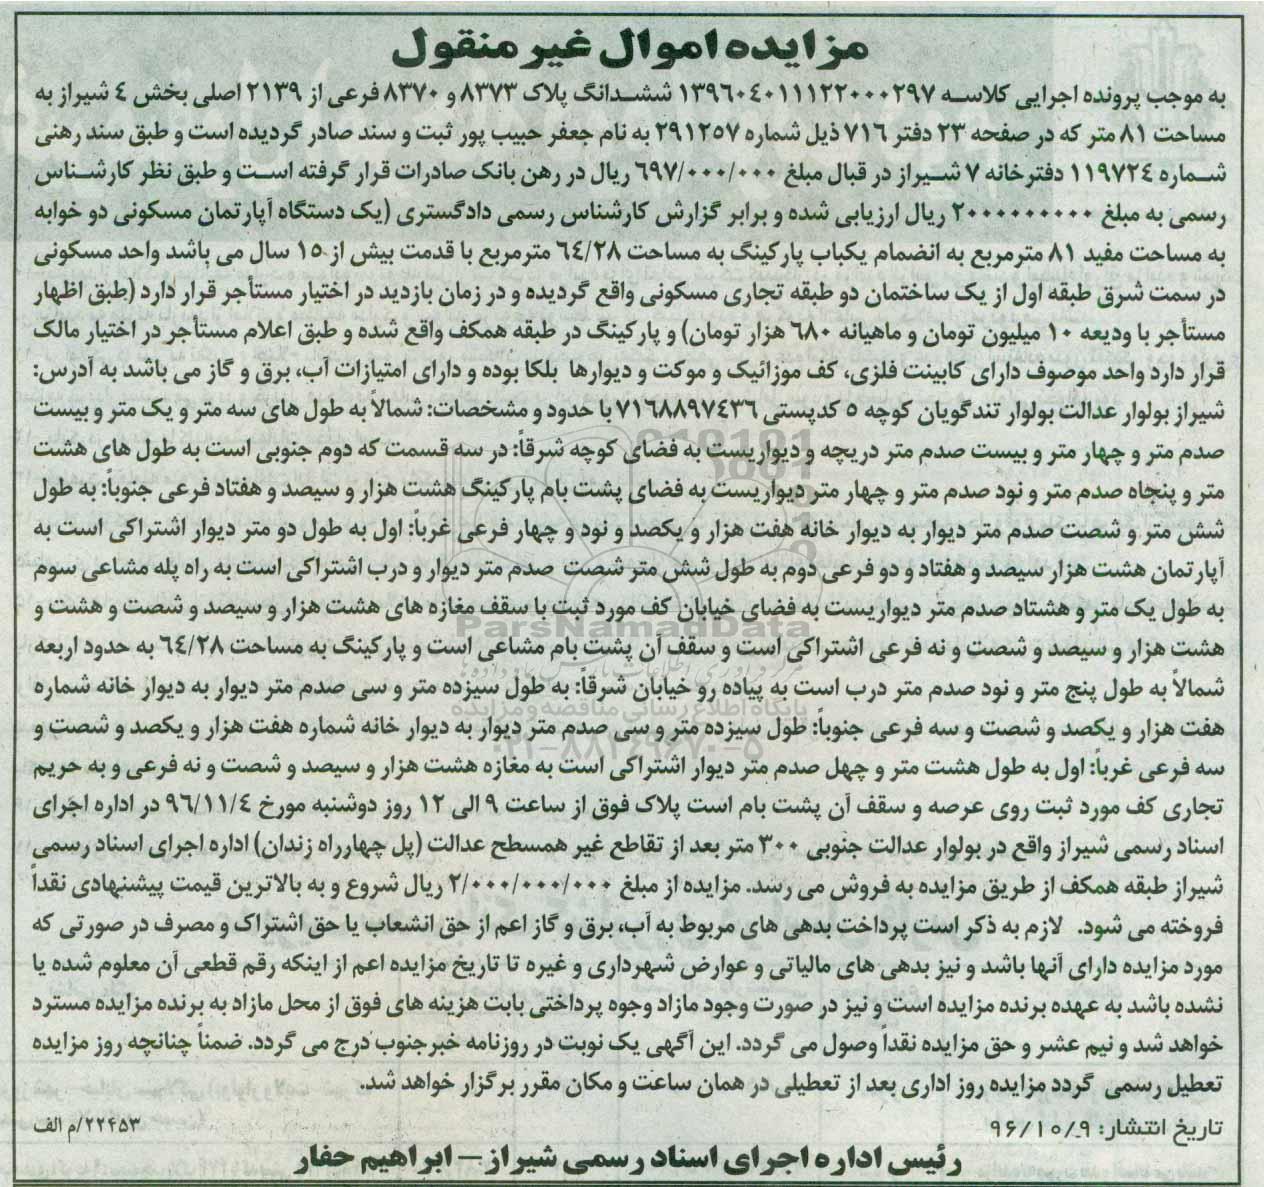 مزایده اموال غیر منقول
به موجب پرونده اجرایی کلاسه ۱۳۹۶۰۴۰۱۱۱۲۲۰۰۰۲۹۷ ششدانگ پلاک ۸۳۷۳ و ۸۳۷۰ فرعی از ۲۱۳۹ اصلی بخش ۴ شیراز به
مساحت ۸۱ متر که در صفحه ۲۳ دفتر ۷۱۶ ذیل شماره ۲۹۱۲۵۷ به نام جعفر حبیب پور ثبت و سند صادر گردیده است و طبق سند رهنی
شماره ۱۱۹۷۲۴ دفترخانه ۷ شیراز در قبال مبلغ ۶۹۷/۰۰۰/۰۰۰ ریال در رهن بانک صادرات قرار گرفته است و طبق نظر کارشناس
رسمی به مبلغ ۲۰۰۰۰۰۰۰۰۰ ریال ارزیابی شده و برابر گزارش کارشناس رسمی دادگستری (یک دستگاه آپارتمان مسکونی دو خوابه
به مساحت مفید ۸۱ مترمربع به انضمام یکباب پارکینگ به مساحت ۶۴/۲۸ مترمربع با قدمت بیش از ۱۵ سال می باشد واحد مسکونی
در سمت شرق طبقه اول از یک ساختمان دو طبقه تجاری مسکونی واقع گردیده و در زمان بازدید در اختیار مستأجر قرار دارد (طبق اظهار
مستأجر با ودیعه ۱۰ میلیون تومان و ماهیانه ۶۸۰ هزار تومان) و پارکینگ در طبقه همکف واقع شده و طبق اعلام مستأجر در اختیار مالک
قرار دارد واحد موصوف دارای کابینت فلزی، کف موزائیک و موکت و دیوارها بلکا بوده و دارای امتیازات آب، برق و گاز می باشد به آدرس:
شیراز بولوار عدالت بولوار تندگویان کوچه ۵ کدپستی ۷۱۶۸۸۹۷۴۳۶ با حدود و مشخصات: شمالاً به طول های سه متر و یک متر و بیست
صدم متر و چهار متر و بیست صدم متر دریچه و دیواریست به فضای کوچه شرقاً: در سه قسمت که دوم جنوبی است به طول های هشت
متر و پنجاه صدم متر و نود صدم متر و چهار متر دیواریست به فضای پشت بام پارکینگ هشت هزار و سیصد و هفتاد فرعی جنوباً: به طول
شش متر و شصت صدم متر دیوار به دیوار خانه هفت هزار و یکصد و نود و چهار فرعی غرباً: اول به طول دو متر دیوار اشتراکی است به
آپارتمان هشت هزار سیصد و هفتاد و دو فرعی دوم به طول شش متر شصت صدم متر دیوار و درب اشتراکی است به راه پله مشاعی سوم
به طول یک متر و هشتاد صدم متر دیواریست به فضای خیابان کف مورد ثبت با سقف مغازه های هشت هزار و سیصد و شصت و هشت و
هشت هزار و سیصد و شصت و نه فرعی اشتراکی است و سقف آن پشت بام مشاعی است و پارکینگ به مساحت ۶۴/۲۸ به حدود اربعه
شمالاً به طول پنج متر و نود صدم متر درب است به پیاده رو خیابان شرقاً: به طول سیزده متر و سی صدم متر دیوار به دیوار خانه شماره
هفت هزار و یکصد و شصت و سه فرعی جنوباً: طول سیزده متر و سی صدم متر دیوار به دیوار خانه شماره هفت هزار و یکصد و شصت و
سه فرعی غرباً: اول به طول هشت متر و چهل صدم متر دیوار اشتراکی است به مغازه هشت هزار و سیصد و شصت و نه فرعی و به حریم
تجاری کف مورد ثبت روی عرصه و سقف آن پشت بام است پلاک فوق از ساعت ۹ الی ۱۲ روز دوشنبه مورخ ۹۶/۱۱/۴ در اداره اجرای
اسناد رسمی شیراز واقع در بولوار عدالت جنوبی ۳۰۰ متر بعد از تقاطع غیر همسطح عدالت (پل چهارراه زندان) اداره اجرای اسناد رسمی
شیراز طبقه همکف از طریق مزایده به فروش می رسد. مزایده از مبلغ ۲/۰۰۰/۰۰۰/۰۰۰ ریال شروع و به بالاترین قیمت پیشنهادی نقداً
فروخته می شود. لازم به ذکر است پرداخت بدهی های مربوط به آب، برق و گاز اعم از حق انشعاب یا حق اشتراک و مصرف در صورتی که
مورد مزایده دارای آنها باشد و نیز بدهی های مالیاتی و عوارض شهرداری و غیره تا تاریخ مزایده اعم از اینکه رقم قطعی آن معلوم شده یا
نشده باشد به عهده برنده مزایده است و نیز در صورت وجود مازاد وجوه پرداختی بابت هزینه های فوق از محل مازاد به برنده مزایده مسترد
خواهد شد و نیم عشر و حق مزایده نقداً وصول می گردد. این آگهی یک نوبت در روزنامه خبرجنوب درج می گردد. ضمناً چنانچه روز مزایده
تعطیل رسمی گردد مزایده روز اداری بعد از تعطیلی در همان ساعت و مکان مقرر برگزار خواهد شد.
تاریخ انتشار: ۹۶/۱۰/۰۹ ۲۲۴۵۳/م الف
رئیس اداره اجرای اسناد رسمی شیراز – ابراهیم حفار
ParsNamadData
پایگاه اطلاع رسانی مناقصه و مزایده
۰۲۱-۸۸۳۴۹۶۷۰-۵